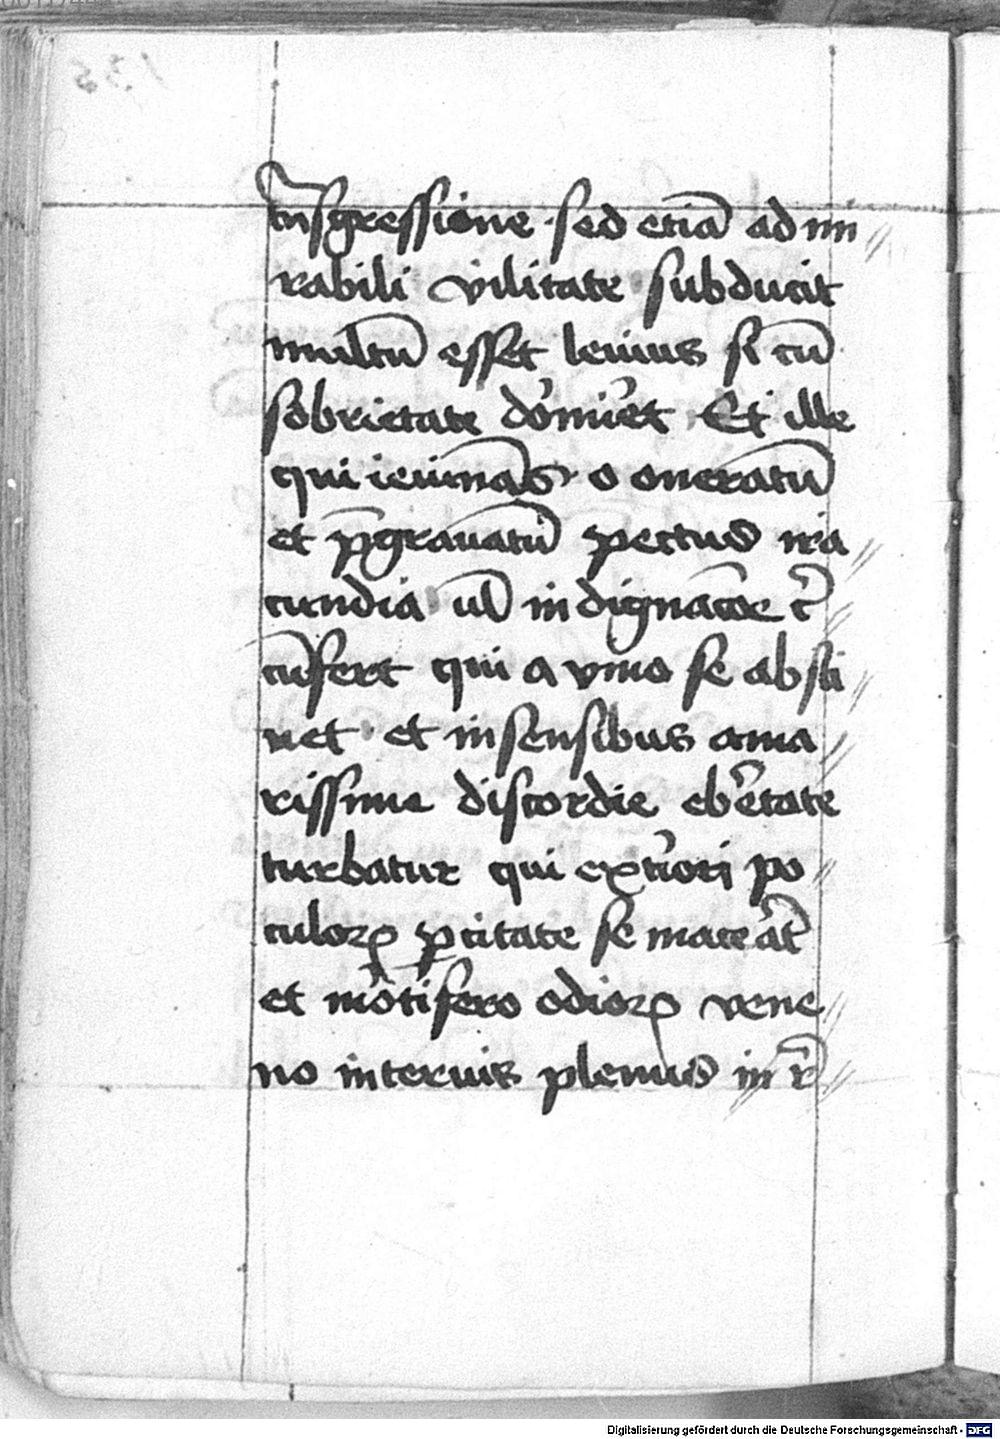 tͣnsgressione · sed etiā ad mi//
rabili vilitate subducit
multū esset leuius si cū
sobrietate dormiret · Et ille
qui ieiunās · o oneratū
et p̄grauatū pectus ira//
cundia ul̄ indignacōe c̄//
cūfert qui a vino se absti//
net · et in sensibus ama//
rissime discordie eb'etate
turbatur qui ext'iori po//
culorꝝ ꝑcitate se mac'at
et mortifero odiorꝝ vene//
no interius plenus in r̄//
Digitalisierung gefördert durch die Deutsche Forschungsgemeinschaft - DFG